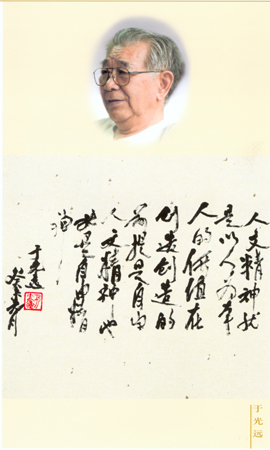 人文精神就
是以人为本
人的价值在
创造创造的
前提是自由
人文精神也
就是自由精
神
于光远
于光远